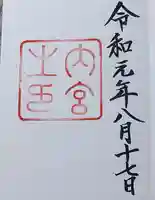 令和元年八月十七日
内宮之印